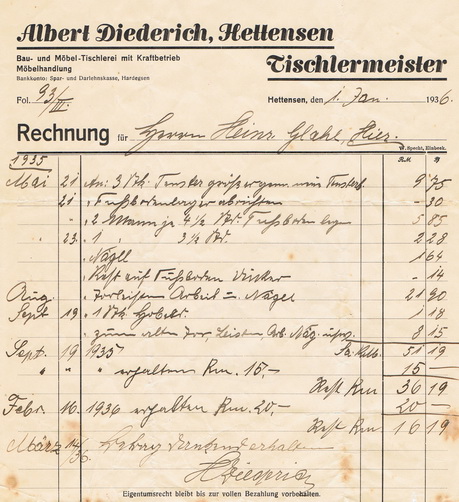 Albert Diederich, Hettensen
Bau- und Möbel-Tischlerei mit Kraftbetrieb
Möbelhandlung
Bankkonto: Spar- und Darlehnskasse, Hardegsen
Tischlermeister
Fol. 93/III.
Hettensen, den 1. Jan. 1936.
Rechnung für Herrn Heinr. Glahe, Hier.
W. Specht, Einbeck.
1935 RM. ₰
Mai 21 An: 3 Stk. Fenster 9 75
21 " Fußbodenlager abrichten - 30
" " 2 Mann je 4 1/2 Std. Fußboden legen 5 85
" 23. " 1 " 3 1/2 Std. 2 28
" Nägel 1 64
" auf Fußboden - 14
Aug. " Arbeit = Nägel 21 90
Sept 19 " 1 Stk. 1 18
" zum alten Tor, Leisten, Arb. Näg. usw. 8 15
Sept. 19 1935 51 19
" " " erhalten Rm. 15,- 15 -
Rest Rm 36 19
Febr. 16. 1936 erhalten Rm. 20,- 20 -
Rest Rm. 16 19
März 14/36. Betrag dankend erhalten
H Diederich
Eigentumsrecht bleibt bis zur vollen Bezahlung vorbehalten.